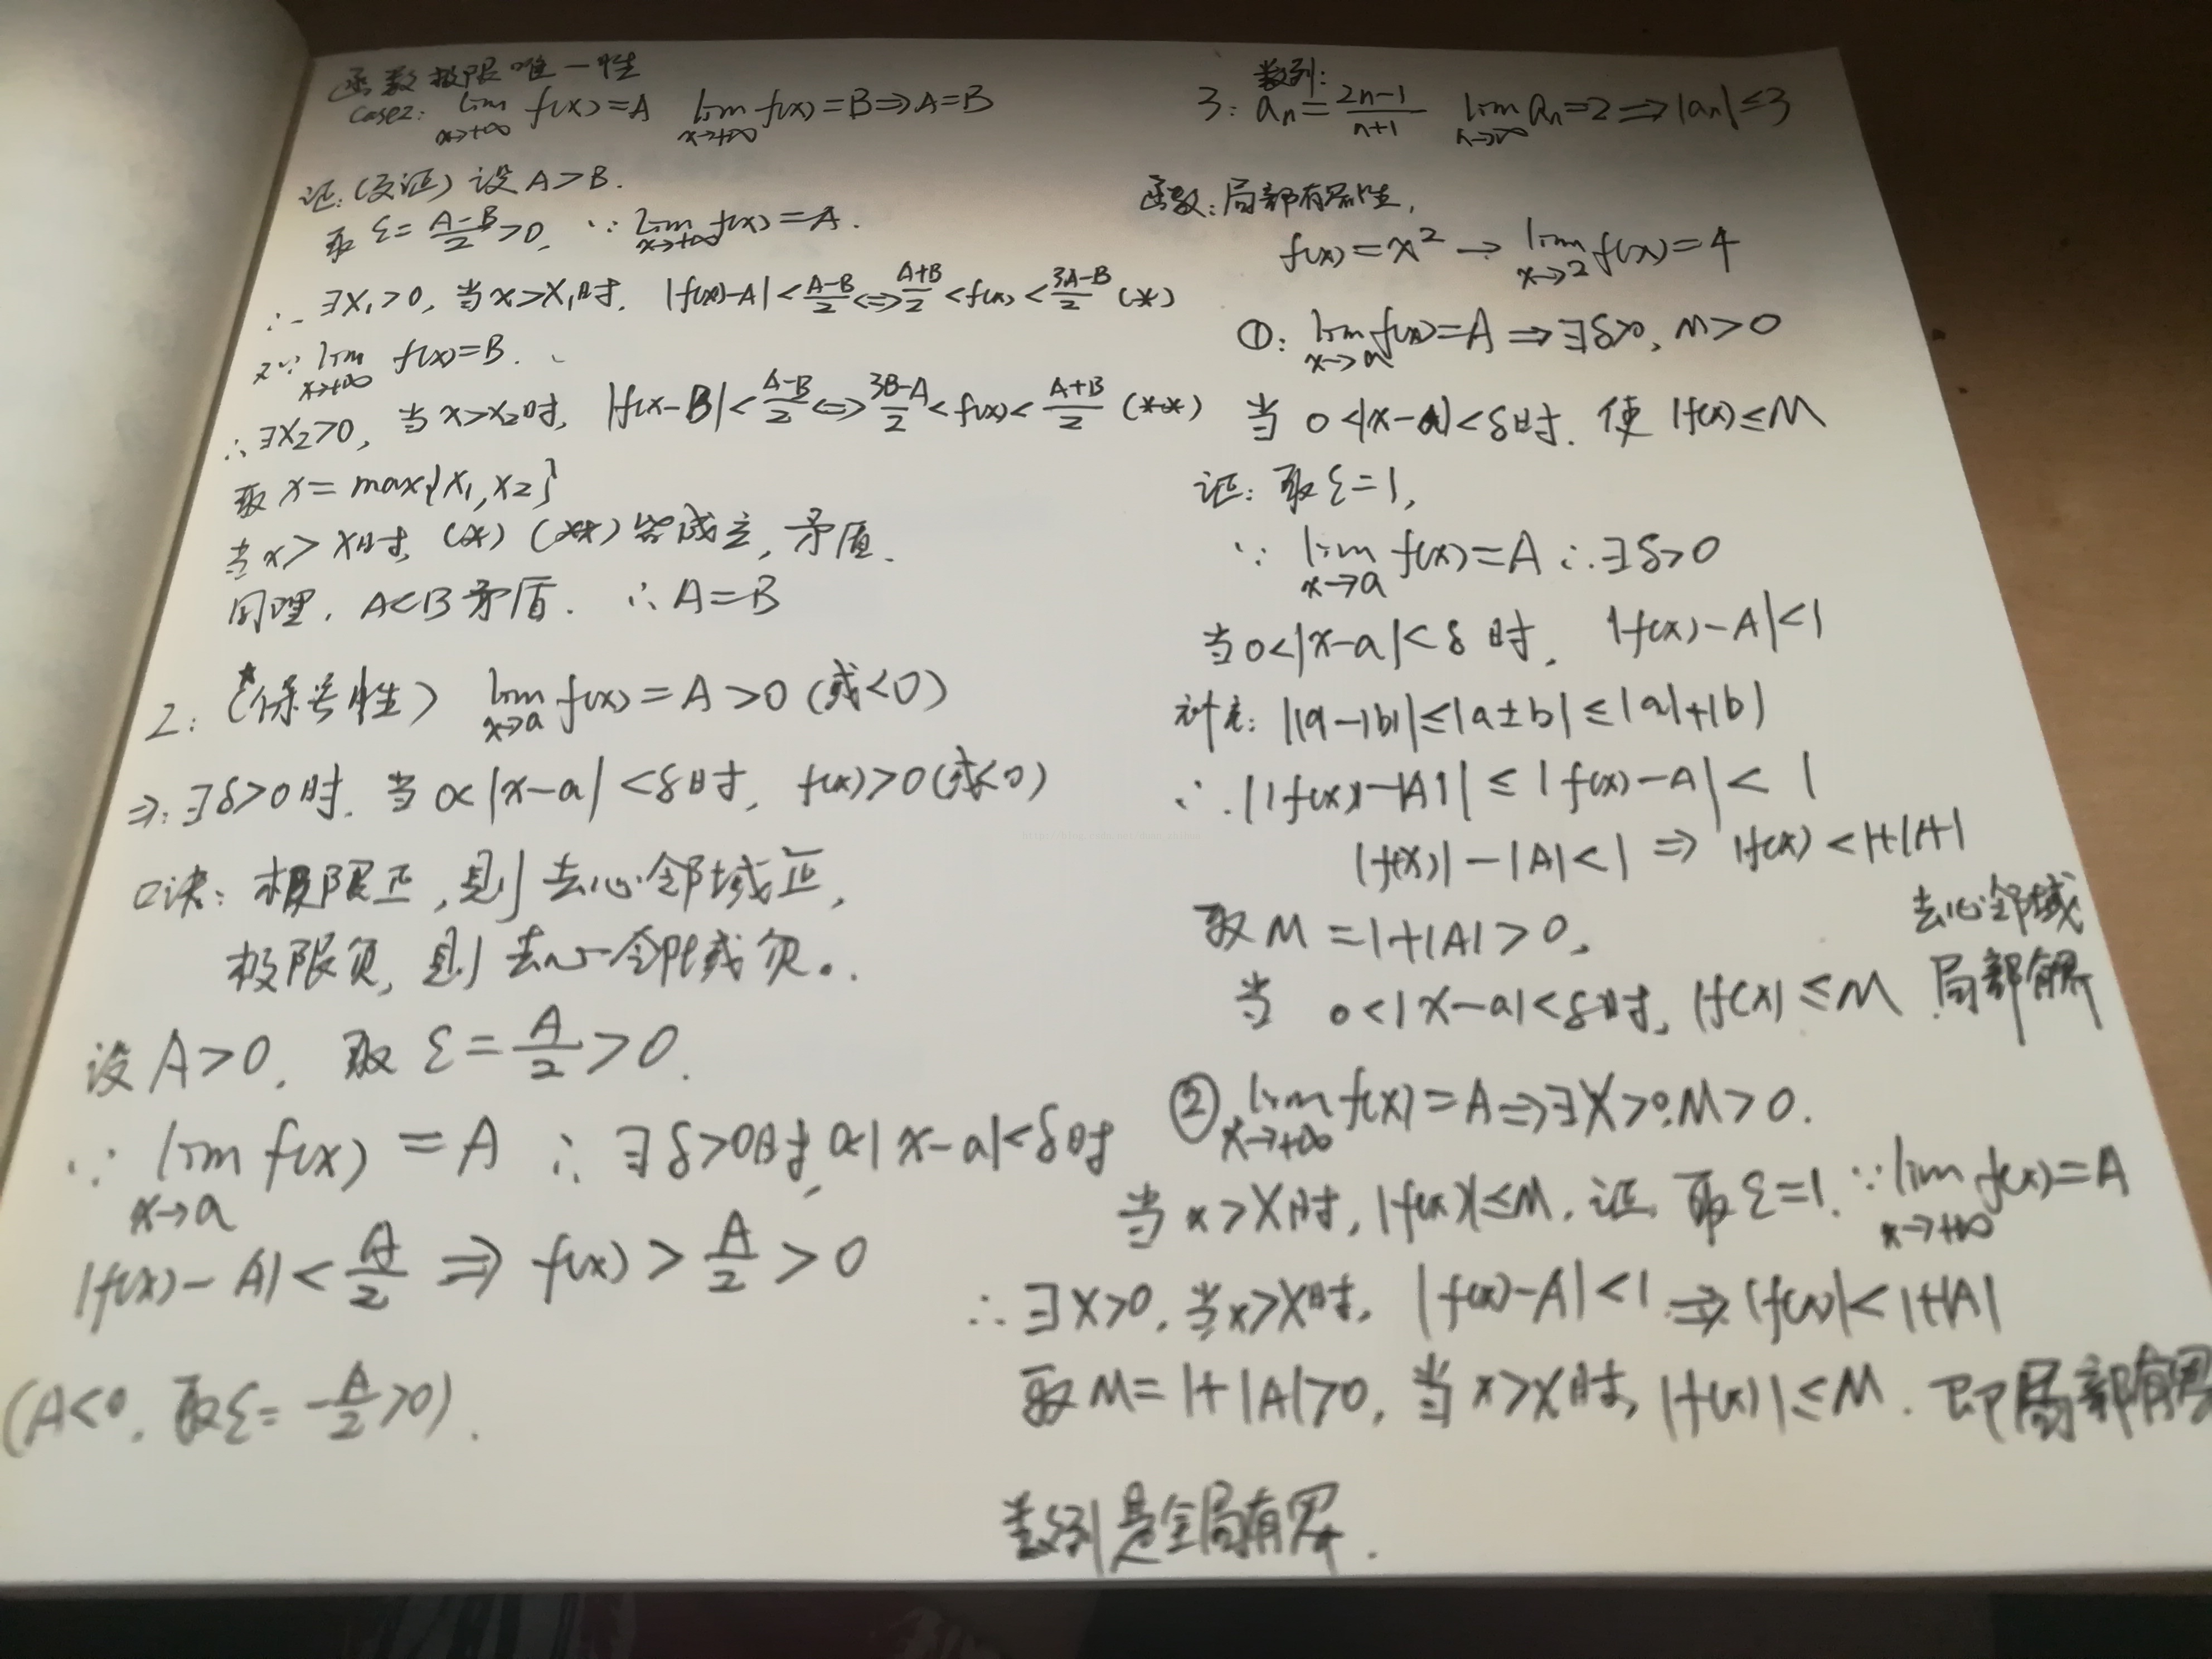 函数极限唯一性
case2: lim x→+∞ f(x)=A lim x→+∞ f(x)=B⇒A=B
证:(反证) 设 A>B.
取 ε=(A-B)/2>0, ∵ lim x→+∞ f(x)=A.
∴ ∃X₁>0, 当x>X₁时, |f(x)-A|<(A-B)/2⇔(A+B)/2<f(x)<(3A-B)/2 (*)
又∵ lim x→+∞ f(x)=B.
∴ ∃X₂>0, 当x>X₂时, |f(x-B|<(A-B)/2⇔(3B-A)/2<f(x)<(A+B)/2 (**)
取 X=max{X₁,X₂}
当x>X时, (*) (**) 皆成立, 矛盾.
同理, A<B矛盾. ∴A=B
2: (*保号性) lim x→a f(x)=A>0 (或<0)
⇒: ∃δ>0时, 当 0<|x-a|<δ时, f(x)>0(或<0)
口诀: 极限正, 则去心邻域正,
极限负, 则去心邻域负.
设A>0, 取 ε=A/2>0.
∵ lim x→a f(x)=A ∴ ∃δ>0时, 0<|x-a|<δ时
|f(x)-A|<A/2 ⇒ f(x)>A/2>0
(A<0, 取ε=-A/2>0).
数列:
3: aₙ=(2n-1)/(n+1) lim n→∞ aₙ=2⇒|aₙ|≤3
函数: 局部有界性,
f(x)=x²→ lim x→2 f(x)=4
①: lim x→a f(x)=A⇒∃δ>0, M>0
当 0<|x-a|<δ时. 使 |f(x)≤M
证: 取ε=1,
∵ lim x→a f(x)=A ∴∃δ>0
当0<|x-a|<δ时, |f(x)-A|<1
||a-|b||≤|a±b|≤|a|+|b|
∴ ||f(x)|-|A||≤|f(x)-A|<1
|f(x)|-|A|<1 ⇒ |f(x)<1+|A|
取M=1+|A|>0, 去心邻域
当 0<|x-a|<δ时, |f(x)|≤M 局部有界
② lim x→+∞ f(x)=A⇒∃X>0.M>0.
当x>X时, |f(x)|≤M. 证 取ε=1. ∵ lim x→+∞ f(x)=A
∴ ∃X>0, 当x>X时, |f(x)-A|<1⇒|f(x)|<1+|A|
取M=1+|A|>0, 当x>X时, |f(x)|≤M. 即局部有界
数列是全局有界.